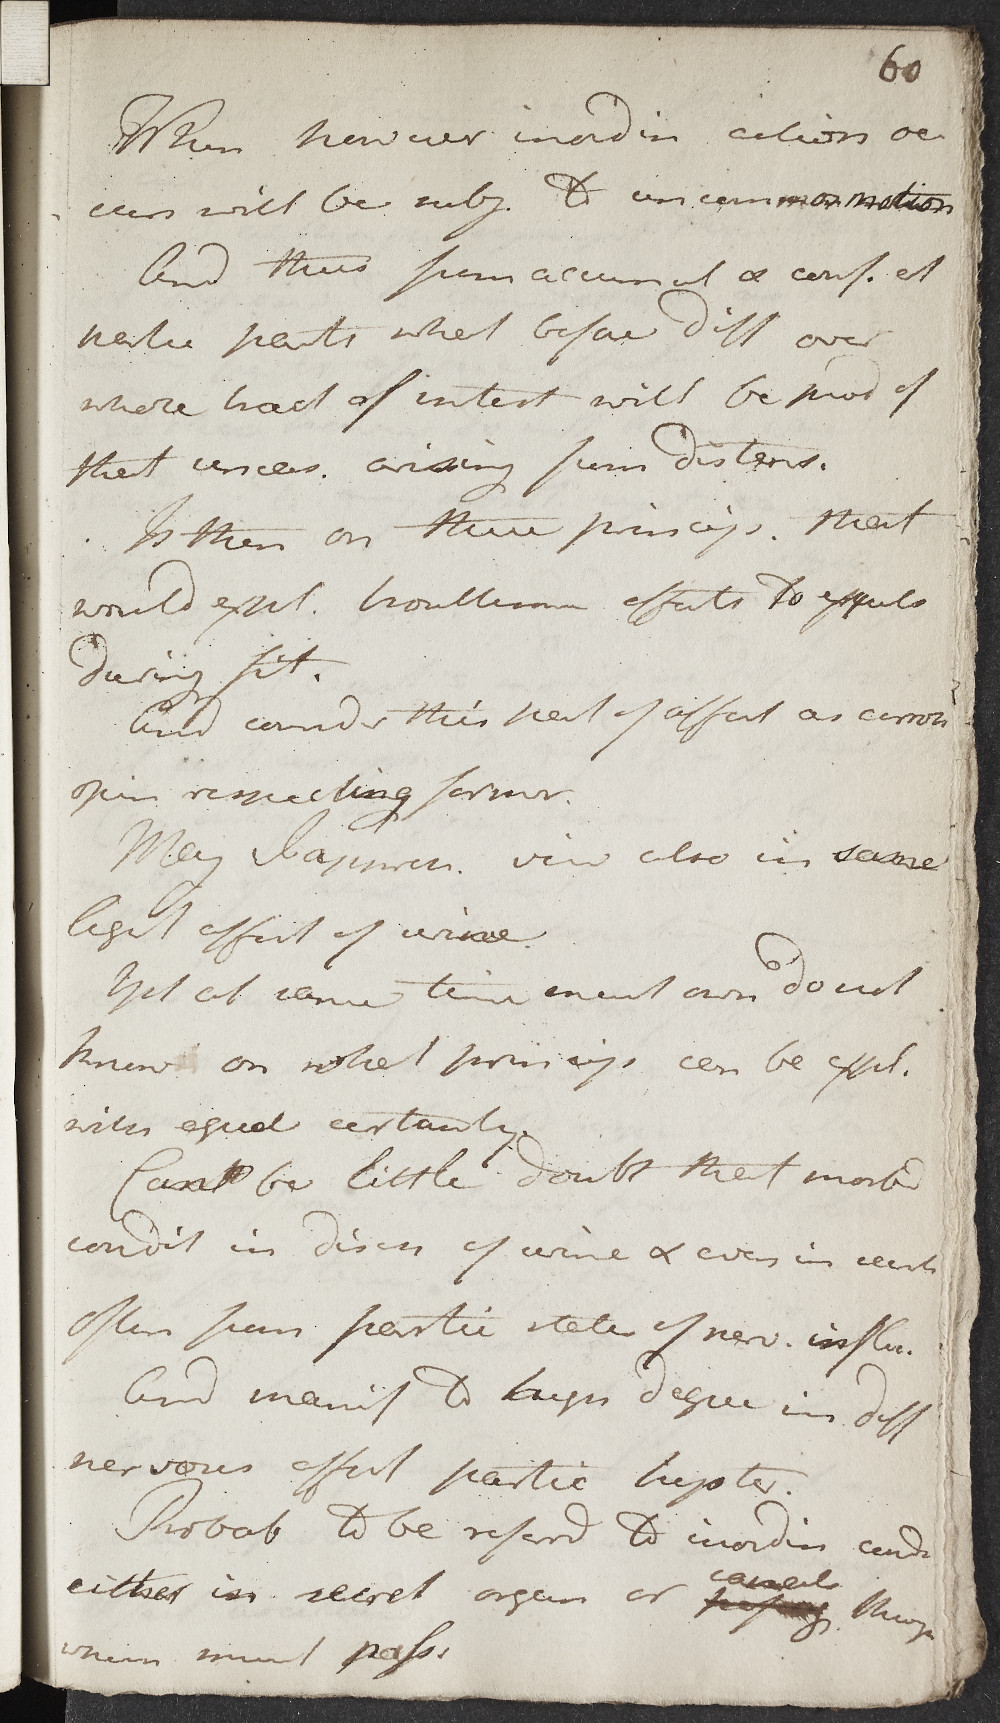 60
When however inordin action oc
curs will be subj. to uncommon motion
And thus from accumul & conf. at
partic parts what before diff over
whole tract of intest will be prod of
that uneas. arising from distens.
Is then on these princip. that
would expl. troublesome efforts to expuls
during fit.
And consider this part of affect as
opin respecting former.
May I apprehen. view also in same
light effect of urine.
Yet at same time must own do not
know on what princip can be expl.
with equal certainty.
Cant be little doubt that morbd
condit in disch of urine & even in
often from partic state of nerv. influ.
And manif to high degree in diff
nervous affect partic hyster.
Probab to be referrd to inordin cond
either in secret organ or canals throug
whence must pass.